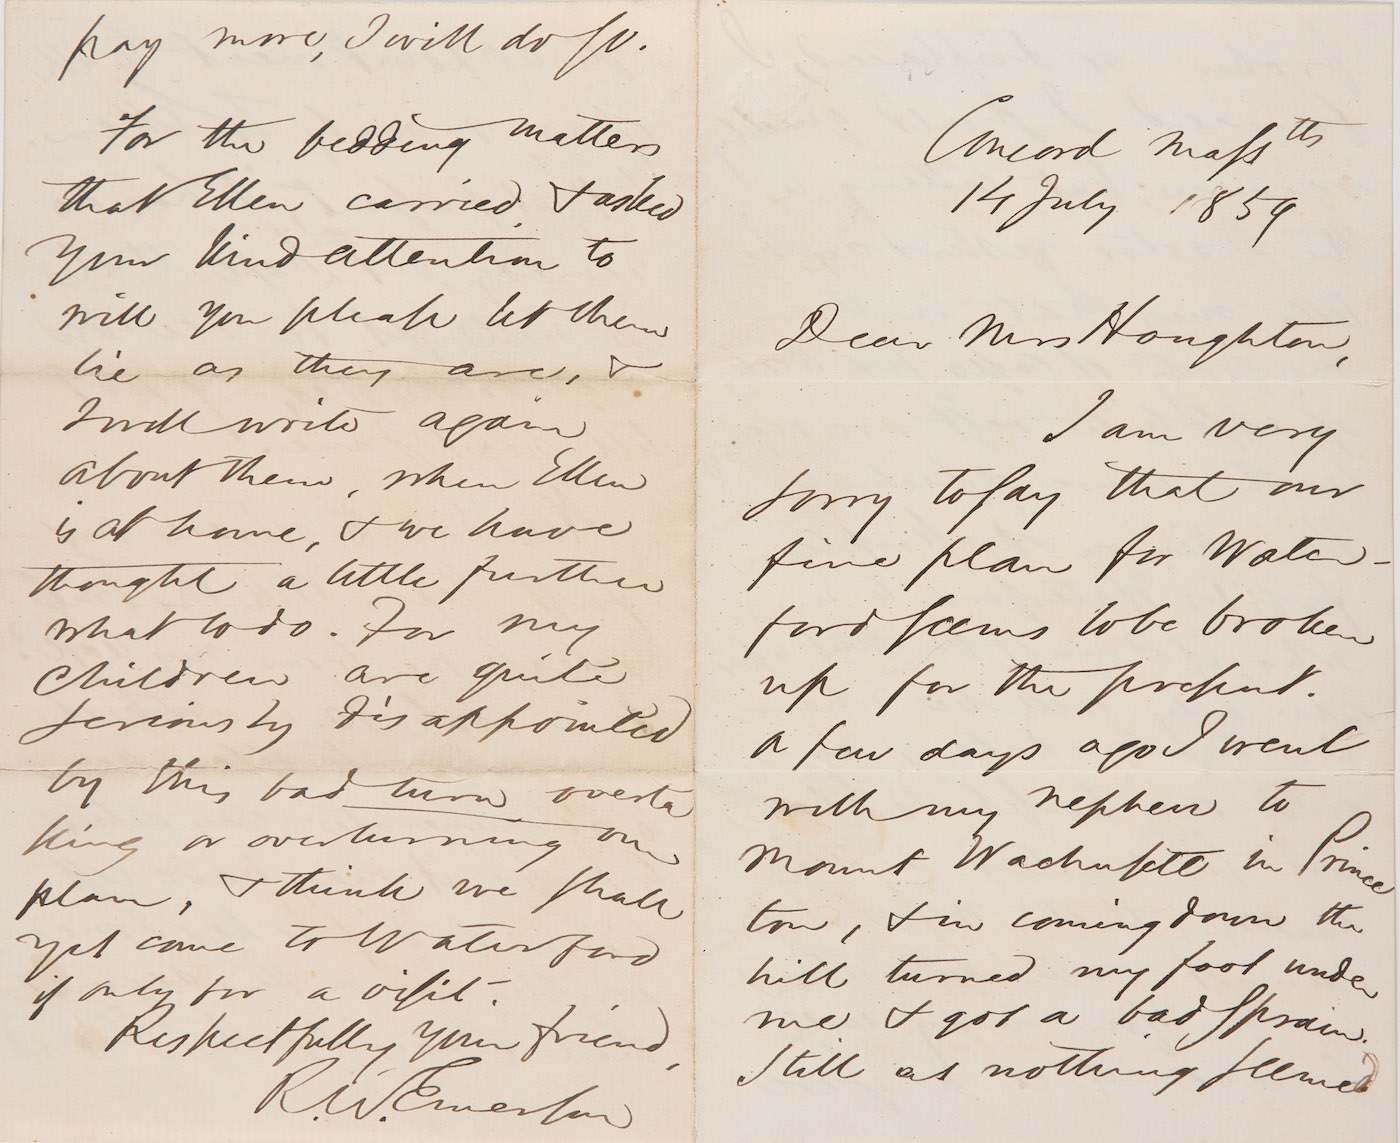 Concord Mass^tts
14 July 1859
Dear Mrs Houghton,
I am very
sorry to say that our
fine plan for Water-
ford seems to be broken
up for the present.
A few days ago I went
with my nephew to
Mount Wachusett in Prince
ton, & in coming down the
hill turned my foot under
me & got a bad sprain.
Still as nothing seemed
pay more, I will do so.
For the bedding matters
that Ellen carried & asked
your kind attention to
will you please let them
lie as they are, &
I will write again
about them, when Ellen
is at home, & we have
thought a little further
what to do. For my
children are quite
seriously disappointed
by this bad turn overta
king or overturning our
plan, & I think we shall
yet come to Waterford
if only for a visit.
Respectfully your friend,
R. W. Emerson